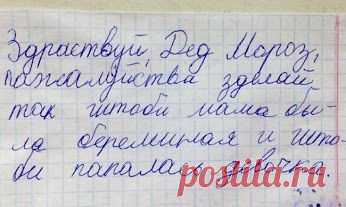 Здраствуй, Дед Мороз,
пожалуйства зделай
так штоби мама бы-
ла беременая и што-
би папалась девочка.
postila.ru